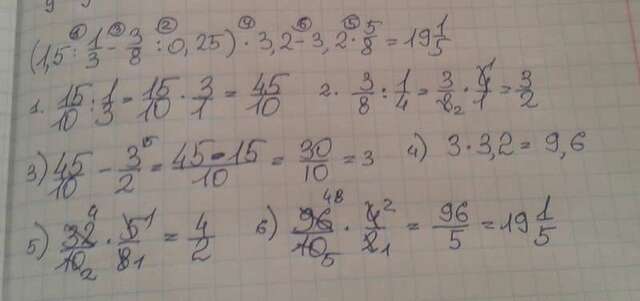 ① ③ ② ④ ⑥ ⑤
(1,5 : 1/3 - 3/8 : 0,25) · 3,2 - 3,2 · 5/8 = 19 1/5
1. 15/10 : 1/3 = 15/10 · 3/1 = 45/10 2. 3/8 : 1/4 = 3/8 2 · 4 1/1 = 3/2
3) 45/10 - 3 5/2 = 45-15/10 = 30/10 = 3 4) 3 · 3,2 = 9,6
5) 32 4/10 2 · 5 1/8 1 = 4/2 6) 96 48/10 5 · 4 2/2 1 = 96/5 = 19 1/5